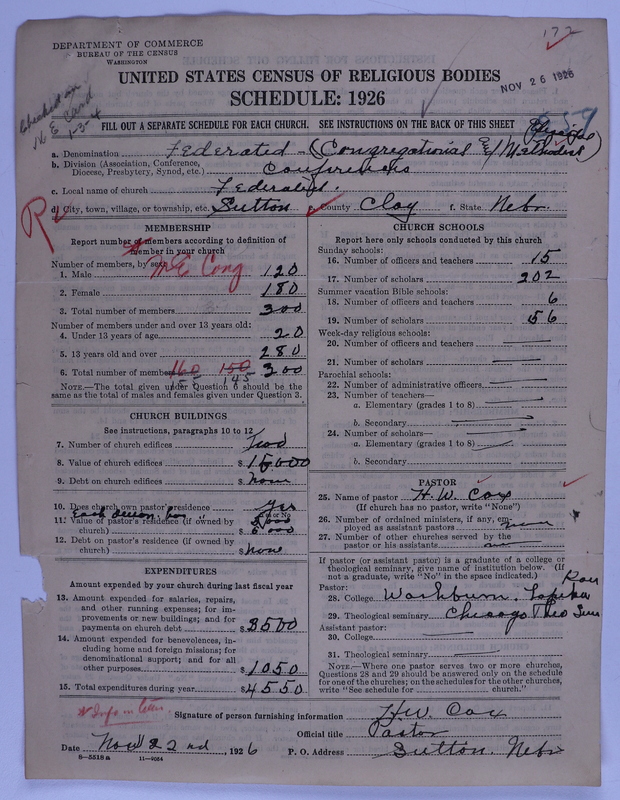 172
DEPARTMENT OF COMMERCE
BUREAU OF THE CENSUS
WASHINGTON
UNITED STATES CENSUS OF RELIGIOUS BODIES
NOV 26 1926
SCHEDULE: 1926
Checked on
M E Card
1-3-4
FILL OUT A SEPARATE SCHEDULE FOR EACH CHURCH. SEE INSTRUCTIONS ON THE BACK OF THIS SHEET
a. Denomination Federated - (Congregational & Methodist)
b. Division (Association, Conference, Diocese, Presbytery, Synod, etc.) Conferences
c. Local name of church Federated.
d. City, town, village, or township, etc. Sutton e. County Clay f. State Nebr.
R
MEMBERSHIP
Report number of members according to definition of
member in your church
Number of members, by sex:
ME Cong
1. Male 120
2. Female 180
3. Total number of members 300
Number of members under and over 13 years old:
4. Under 13 years of age 20
5. 13 years old and over 280
6. Total number of members 160 150 300
155 145
NOTE.—The total given under Question 6 should be
same as the total of males and females given under Question 3.
CHURCH BUILDINGS
See instructions, paragraphs 10 to 12
7. Number of church edifices Two
8. Value of church edifices $15000
9. Debt on church edifices $ none
10. Does church own pastor's residence Yes
Yes or No
11. Value of pastor's residence (if owned by
church) $ 6000
12. Debt on pastor's residence (if owned by
church) $ none
EXPENDITURES
Amount expended by your church during last fiscal year
13. Amount expended for salaries, repairs,
and other running expenses; for im-
provements or new buildings; and for
payments on church debt $3500
14. Amount expended for benevolences, in-
cluding home and foreign missions; for
denominational support; and for all
other purposes $1050
15. Total expenditures during year $4550
CHURCH SCHOOLS
Report here only schools conducted by this church
Sunday schools:
16. Number of officers and teachers 15
17. Number of scholars 202
Summer vacation Bible schools:
18. Number of officers and teachers 6
19. Number of scholars 56
Week-day religious schools:
20. Number of officers and teachers
21. Number of scholars
Parochial schools:
22. Number of administrative officers
23. Number of teachers—
a. Elementary (grades 1 to 8)
b. Secondary
24. Number of scholars—
a. Elementary (grades 1 to 8)
b. Secondary
PASTOR
25. Name of pastor H. W. Cox
(If church has no pastor, write "None")
26. Number of ordained ministers, if any, em-
ployed as assistant pastors none
27. Number of other churches served by the
pastor or his assistants
If pastor (or assistant pastor) is a graduate of a college or
theological seminary, give name of institution below. (If
not a graduate, write "No" in the space indicated.)
Pastor:
28. College Washburn, Topeka
29. Theological seminary Chicago Theo Sem
Assistant pastor:
30. College
31. Theological seminary
NOTE.—Where one pastor serves two or more churches,
Questions 28 and 29 should be answered only on the schedule
for one of the churches; on the schedules for the other churches,
write "See schedule for church."
Signature of person furnishing information H.W. Cox
Official title Pastor
Date Nov 22nd, 1926 P. O. Address Sutton. Nebr
8-5518 a 11-9054